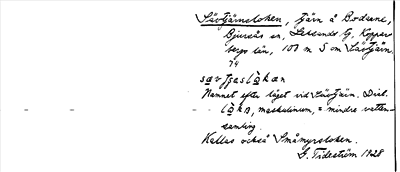 Sävtjärnsloken, tjärn å Bodarne,
Bjursås sn, Leksands G, Koppar-
bergs län, 100 m S om Sävtjärn.
74
Namnet efter läget vid Sävtjärn. Dial.
maskulinum, = mindre vatten-
samling.
Kallas också Småmyrsloken.
G. Tideström 1928